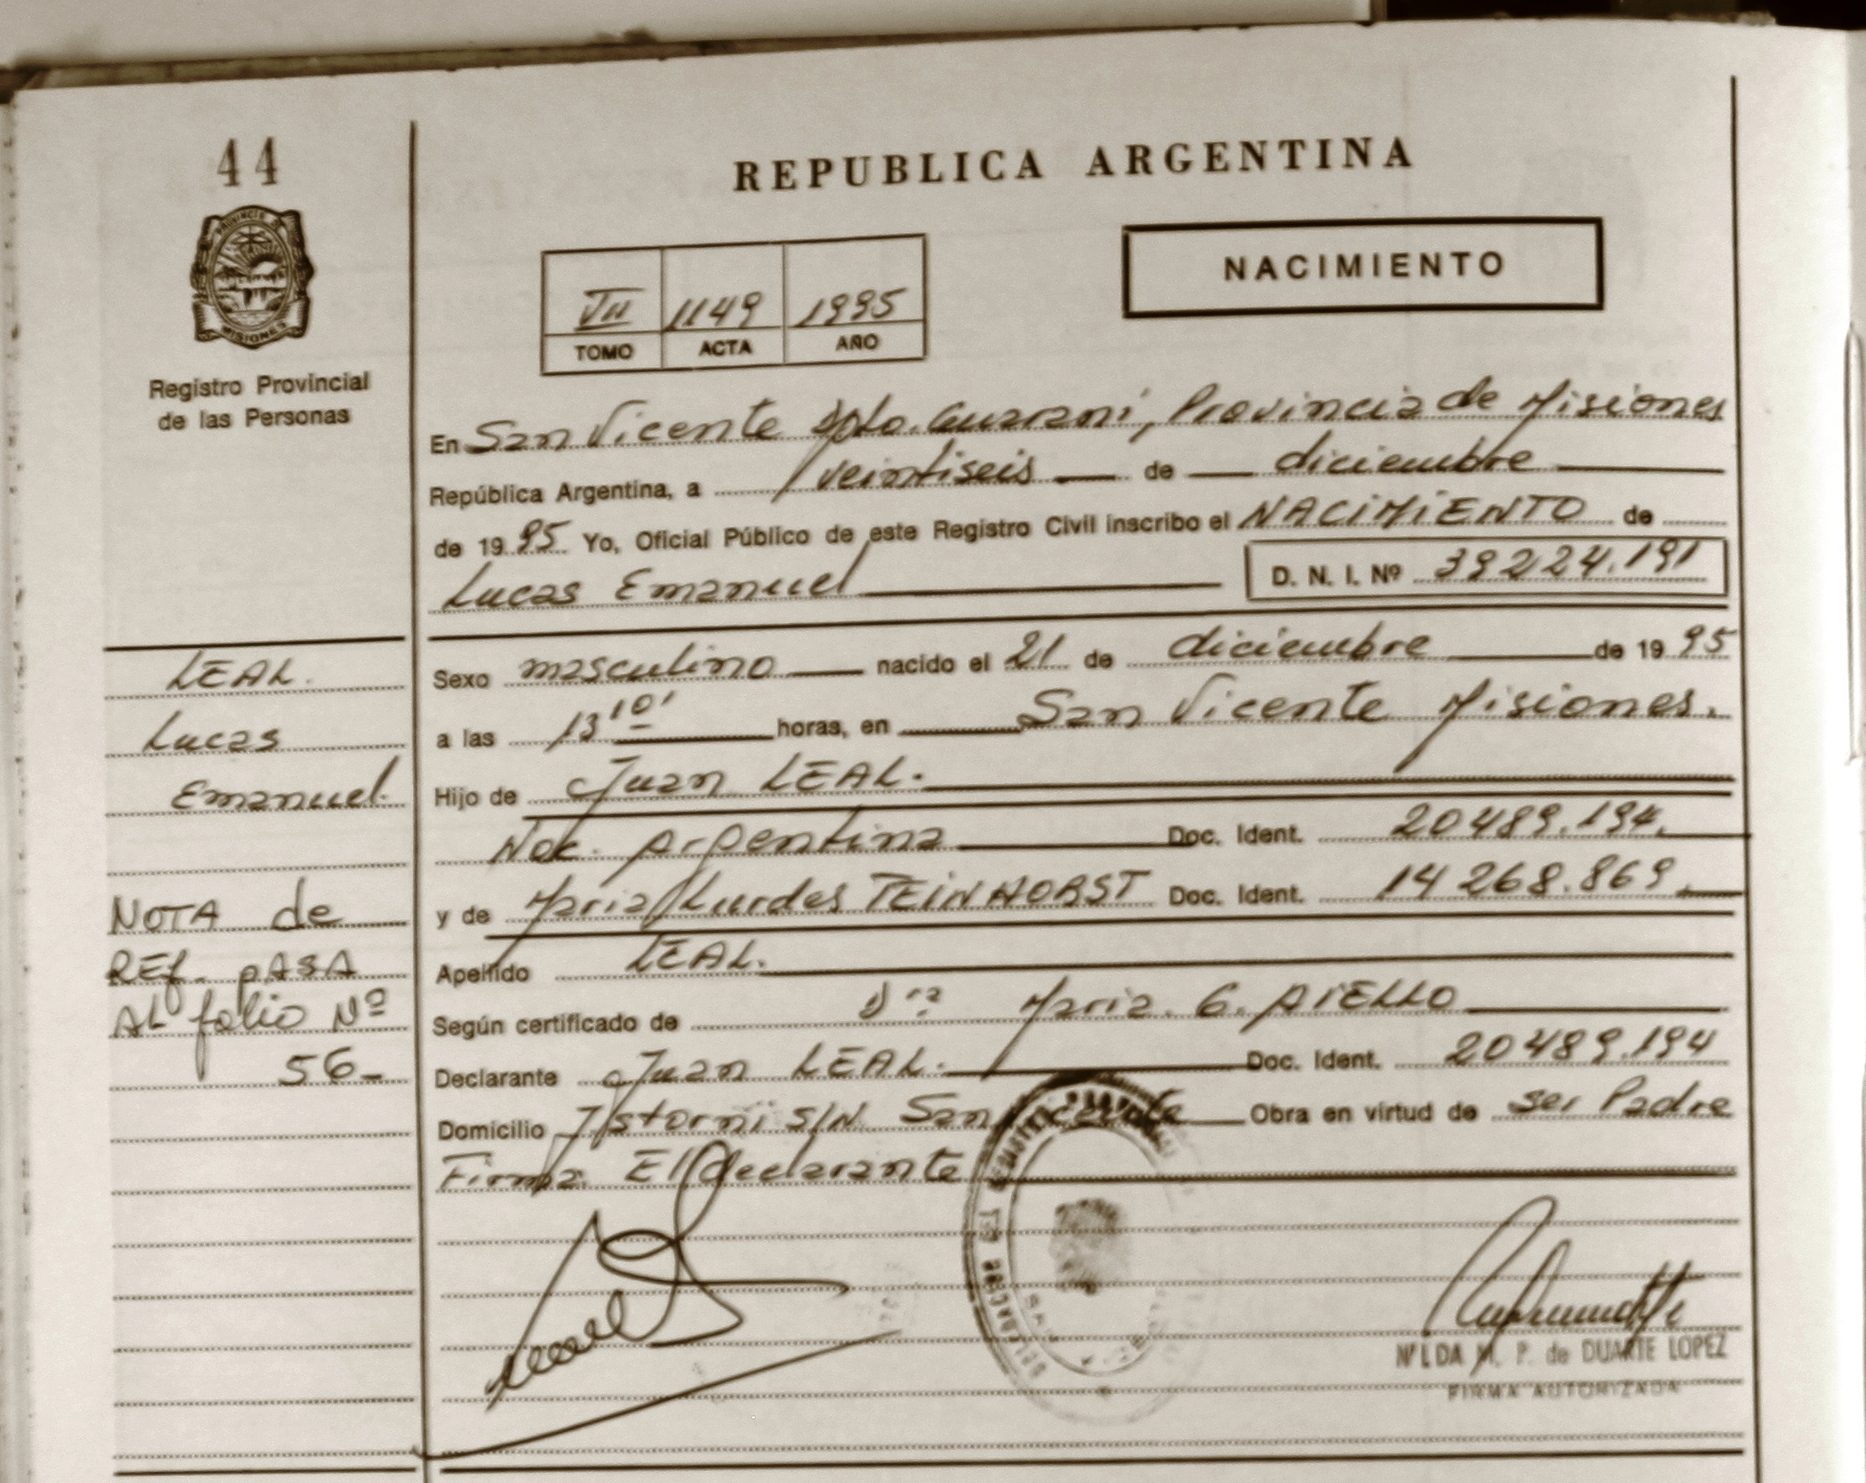 44
REPUBLICA ARGENTINA
NACIMIENTO
VII 1149 1995
TOMO ACTA AÑO
Registro Provincial
de las Personas
En San Vicente Dpto. Guaraní, Provincia de Misiones
República Argentina, a veintiseis de diciembre
de 1995 Yo, Oficial Público de este Registro Civil inscribo el NACIMIENTO de
Lucas Emanuel D. N. I. Nº 39224.191
Sexo masculino nacido el 21 de diciembre de 1995
a las 13 10' horas, en San Vicente Misiones.
Hijo de Juan LEAL.
Nac. Argentina Doc. Ident. 20489.194.
y de Maria Lurdes TEINHORST Doc. Ident. 14268.869.
Apellido LEAL.
Según certificado de Dra Maria. G. AIELLO
Declarante Juan LEAL. Doc. Ident. 20489.194
Domicilio Istorni S/N. San Vicente Obra en virtud de ser Padre
Firma. El declarante
LEAL.
Lucas
Emanuel.
NOTA de
REF. PASA
AL folio Nº
56-
NILDA M. P. de DUARTE LOPEZ
FIRMA AUTORIZADA